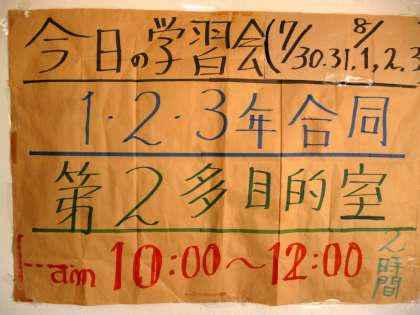 今日の学習会(7/30.31.8/1,2,3
1・2・3年合同
第2多目的室
am 10:00～12:00 2時間